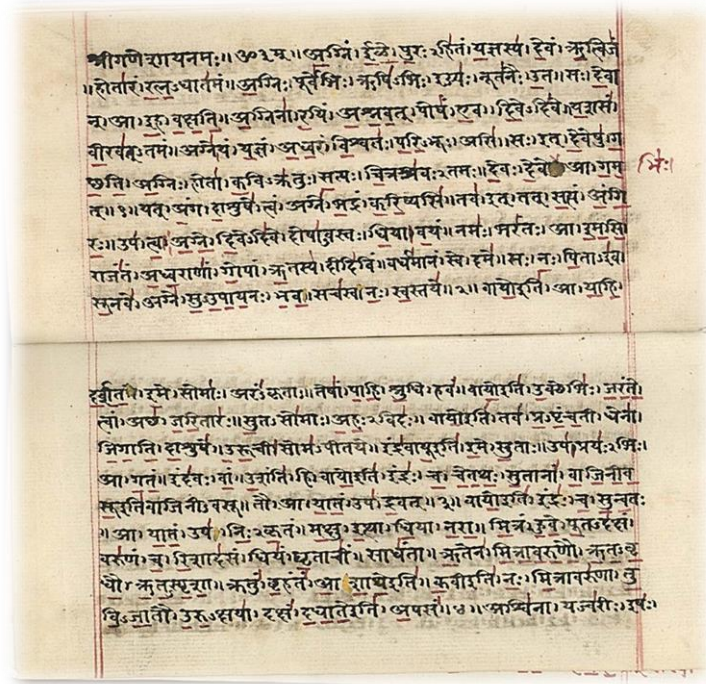 श्रीगणेशायनमः॥ ॐ३म्॥ अग्निं। ईळे। पुरःऽहितं। यज्ञस्य। देवं। ऋत्विजं
॥होतारं। रत्नऽधातमं॥ अग्निः। पूर्वेभिः। ऋषिऽभिः। ईड्यः। नूतनैः। उत॥ सः। देवा
न्। आ। इह। वक्षति॥ अग्निना। रयिं। अश्नवत्। पोषं। एव। दिवेऽदिवे॥ यशसं।
वीरवत्ऽतमं॥ अग्ने। यं। यज्ञं। अध्वरं। विश्वतः। परिऽभूः। असि॥ सः। इत्। देवेषु। ग
च्छति॥ अग्निः। होता। कविऽक्रतुः। सत्यः। चित्रश्रवःऽतमः॥ देवः। देवे आ। गम
भिः।
त्॥१॥ यत्। अंग। दाशुषे। त्वं। अग्ने। भद्रं। करिष्यसि॥ तव। इत्। तत्। सत्यं। अंगि
रः॥ उप। त्वा। अग्ने। दिवेऽदिवे। दोषाऽवस्तः। धिया। वयं॥ नमः। भरंतः। आ। इमसि
राजंतं। अध्वराणां। गोपां। ऋतस्य। दीदिविं॥ वर्धमानं। स्वे। दमे॥ सः। नः। पिताऽइव।
सूनवे। अग्ने। सुऽउपायनः। भव॥ सचस्व। नः। स्वस्तये॥२॥ वायोइति। आ। याहि।
दर्शत। इमे। सोमाः। अरंऽकृताः॥ तेषां। पाहि। श्रुधि। हवं॥ वायोइति। उक्थेभिः। जरंते।
त्वां। अच्छ। जरितारः॥ सुतऽसोमाः। अहःऽविदः॥ वायोइति। तव। प्रऽपृंचती। धेना।
जिगाति। दाशुषे॥ उरूची। सोमऽपीतये॥ इंद्रवायूइति। इमे। सुताः॥ उप। प्रयःऽभिः।
आ। गतं॥ इंदवः। वां। उशंति। हि॥ वायोइति। इंद्रः। च। चेतथः। सुतानां। वाजिनीव
सूइतिवाजिनीऽवसू॥ तौ। आ। यातं। उप। द्रवत्॥३॥ वायोइति। इंद्रः। च। सुन्वतः
॥आ। यातं। उप। निःऽकृतं॥ मक्षु। इत्था। धिया। नरा॥ मित्रं। हुवे। पूतऽदक्षं।
वरुणं। च। रिशादसं॥ धियं। घृताचीं। साधंता॥ ऋतेन। मित्रावरुणौ। ऋतऽवृ
धौ। ऋतऽस्पृशा॥ क्रतुं। बृहंतं। आशाथेइति॥ कवीइति। नः। मित्रावरुणा। तु
विऽजातौ। उरुऽक्षया॥ दक्षं। दधातेइति। अपसं॥४॥ अश्विना। यज्वरीः। इषः।